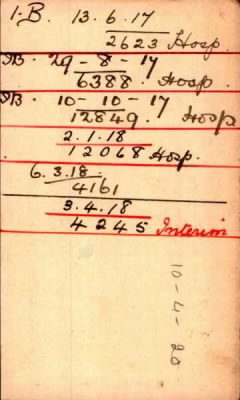 I.B. 13.6.17
2623 Hosp.
IB. 29-8-17
6388. Hosp.
IB. 10-10-17
12849. Hosp
2.1.18
12068 Hosp.
6.3.18.
4161
3.4.18
4245 Interim
10-4-20